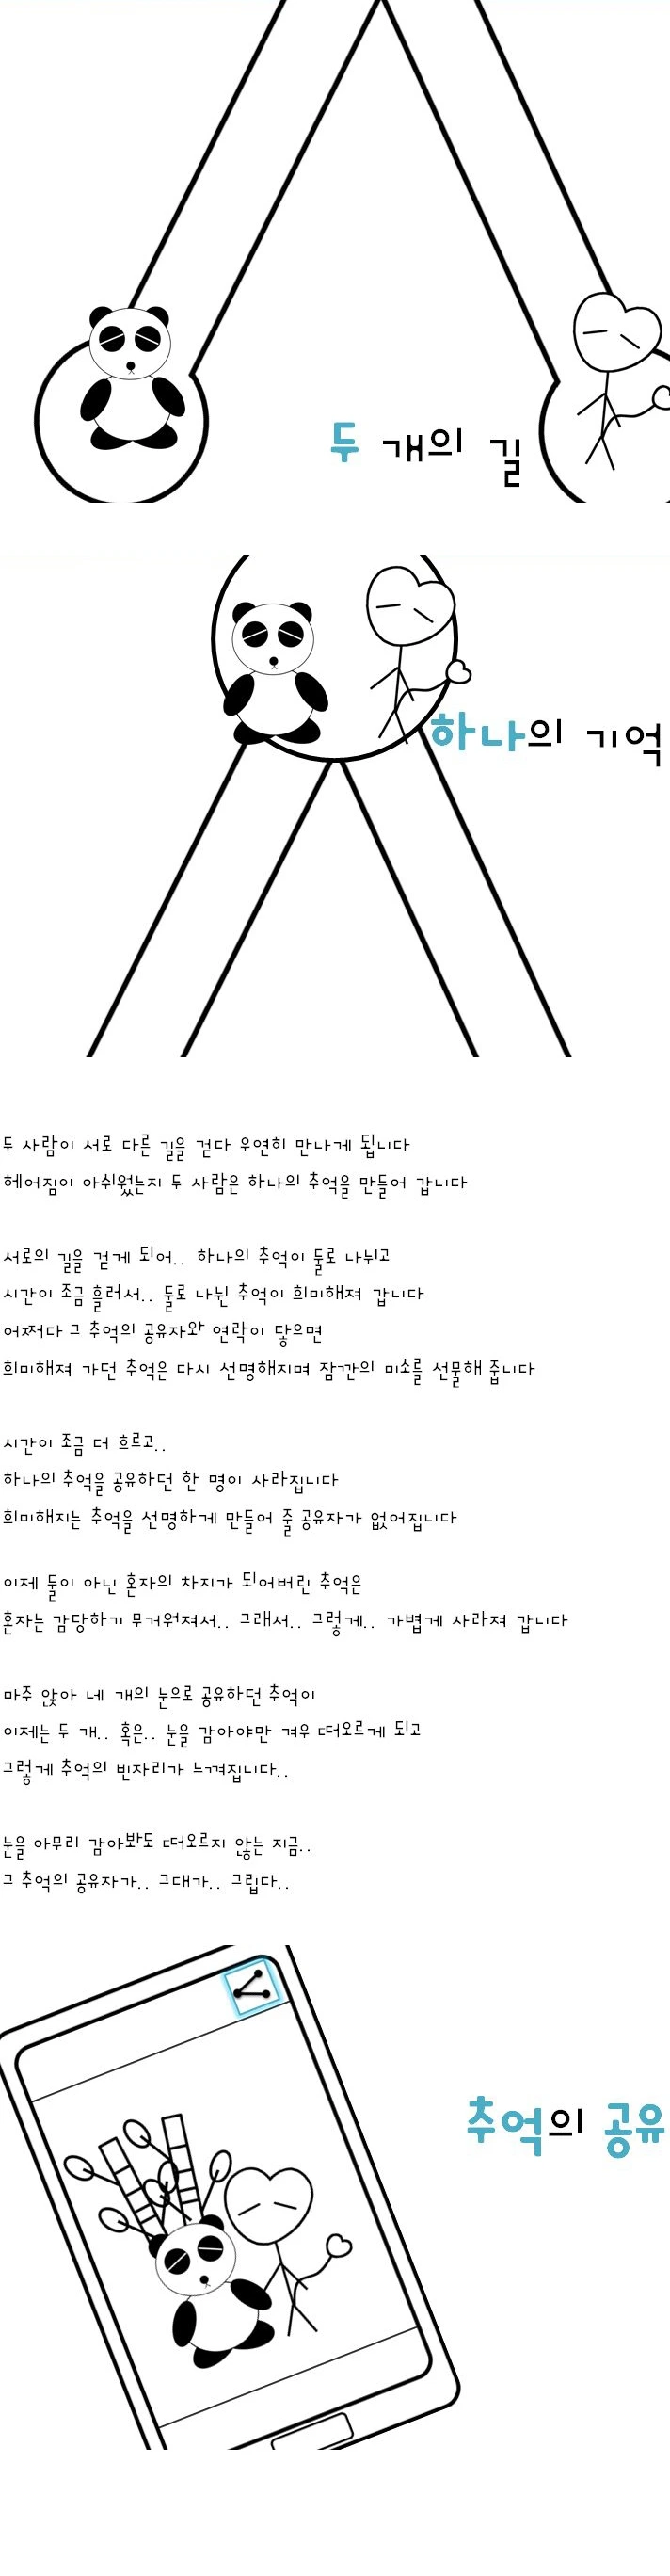 두 개의 길
하나의 기억
두 사람이 서로 다른 길을 걷다 우연히 만나게 됩니다
헤어짐이 아쉬웠는지 두 사람은 하나의 추억을 만들어 갑니다
서로의 길을 걷게 되어.. 하나의 추억이 둘로 나뉘고
시간이 조금 흘러서.. 둘로 나뉜 추억이 희미해져 갑니다
어쩌다 그 추억의 공유자와 연락이 닿으면
희미해져 가던 추억은 다시 선명해지며 잠깐의 미소를 선물해 줍니다
시간이 조금 더 흐르고..
하나의 추억을 공유하던 한 명이 사라집니다
희미해지는 추억을 선명하게 만들어 줄 공유자가 없어집니다
이제 둘이 아닌 혼자의 차지가 되어버린 추억은
혼자는 감당하기 무거워져서.. 그래서.. 그렇게.. 가볍게 사라져 갑니다
마주 앉아 네 개의 눈으로 공유하던 추억이
이제는 두 개.. 혹은.. 눈을 감아야만 겨우 떠오르게 되고
그렇게 추억의 빈자리가 느껴집니다..
눈을 아무리 감아봐도 떠오르지 않는 지금..
그 추억의 공유자가.. 그대가.. 그립다..
추억의 공유